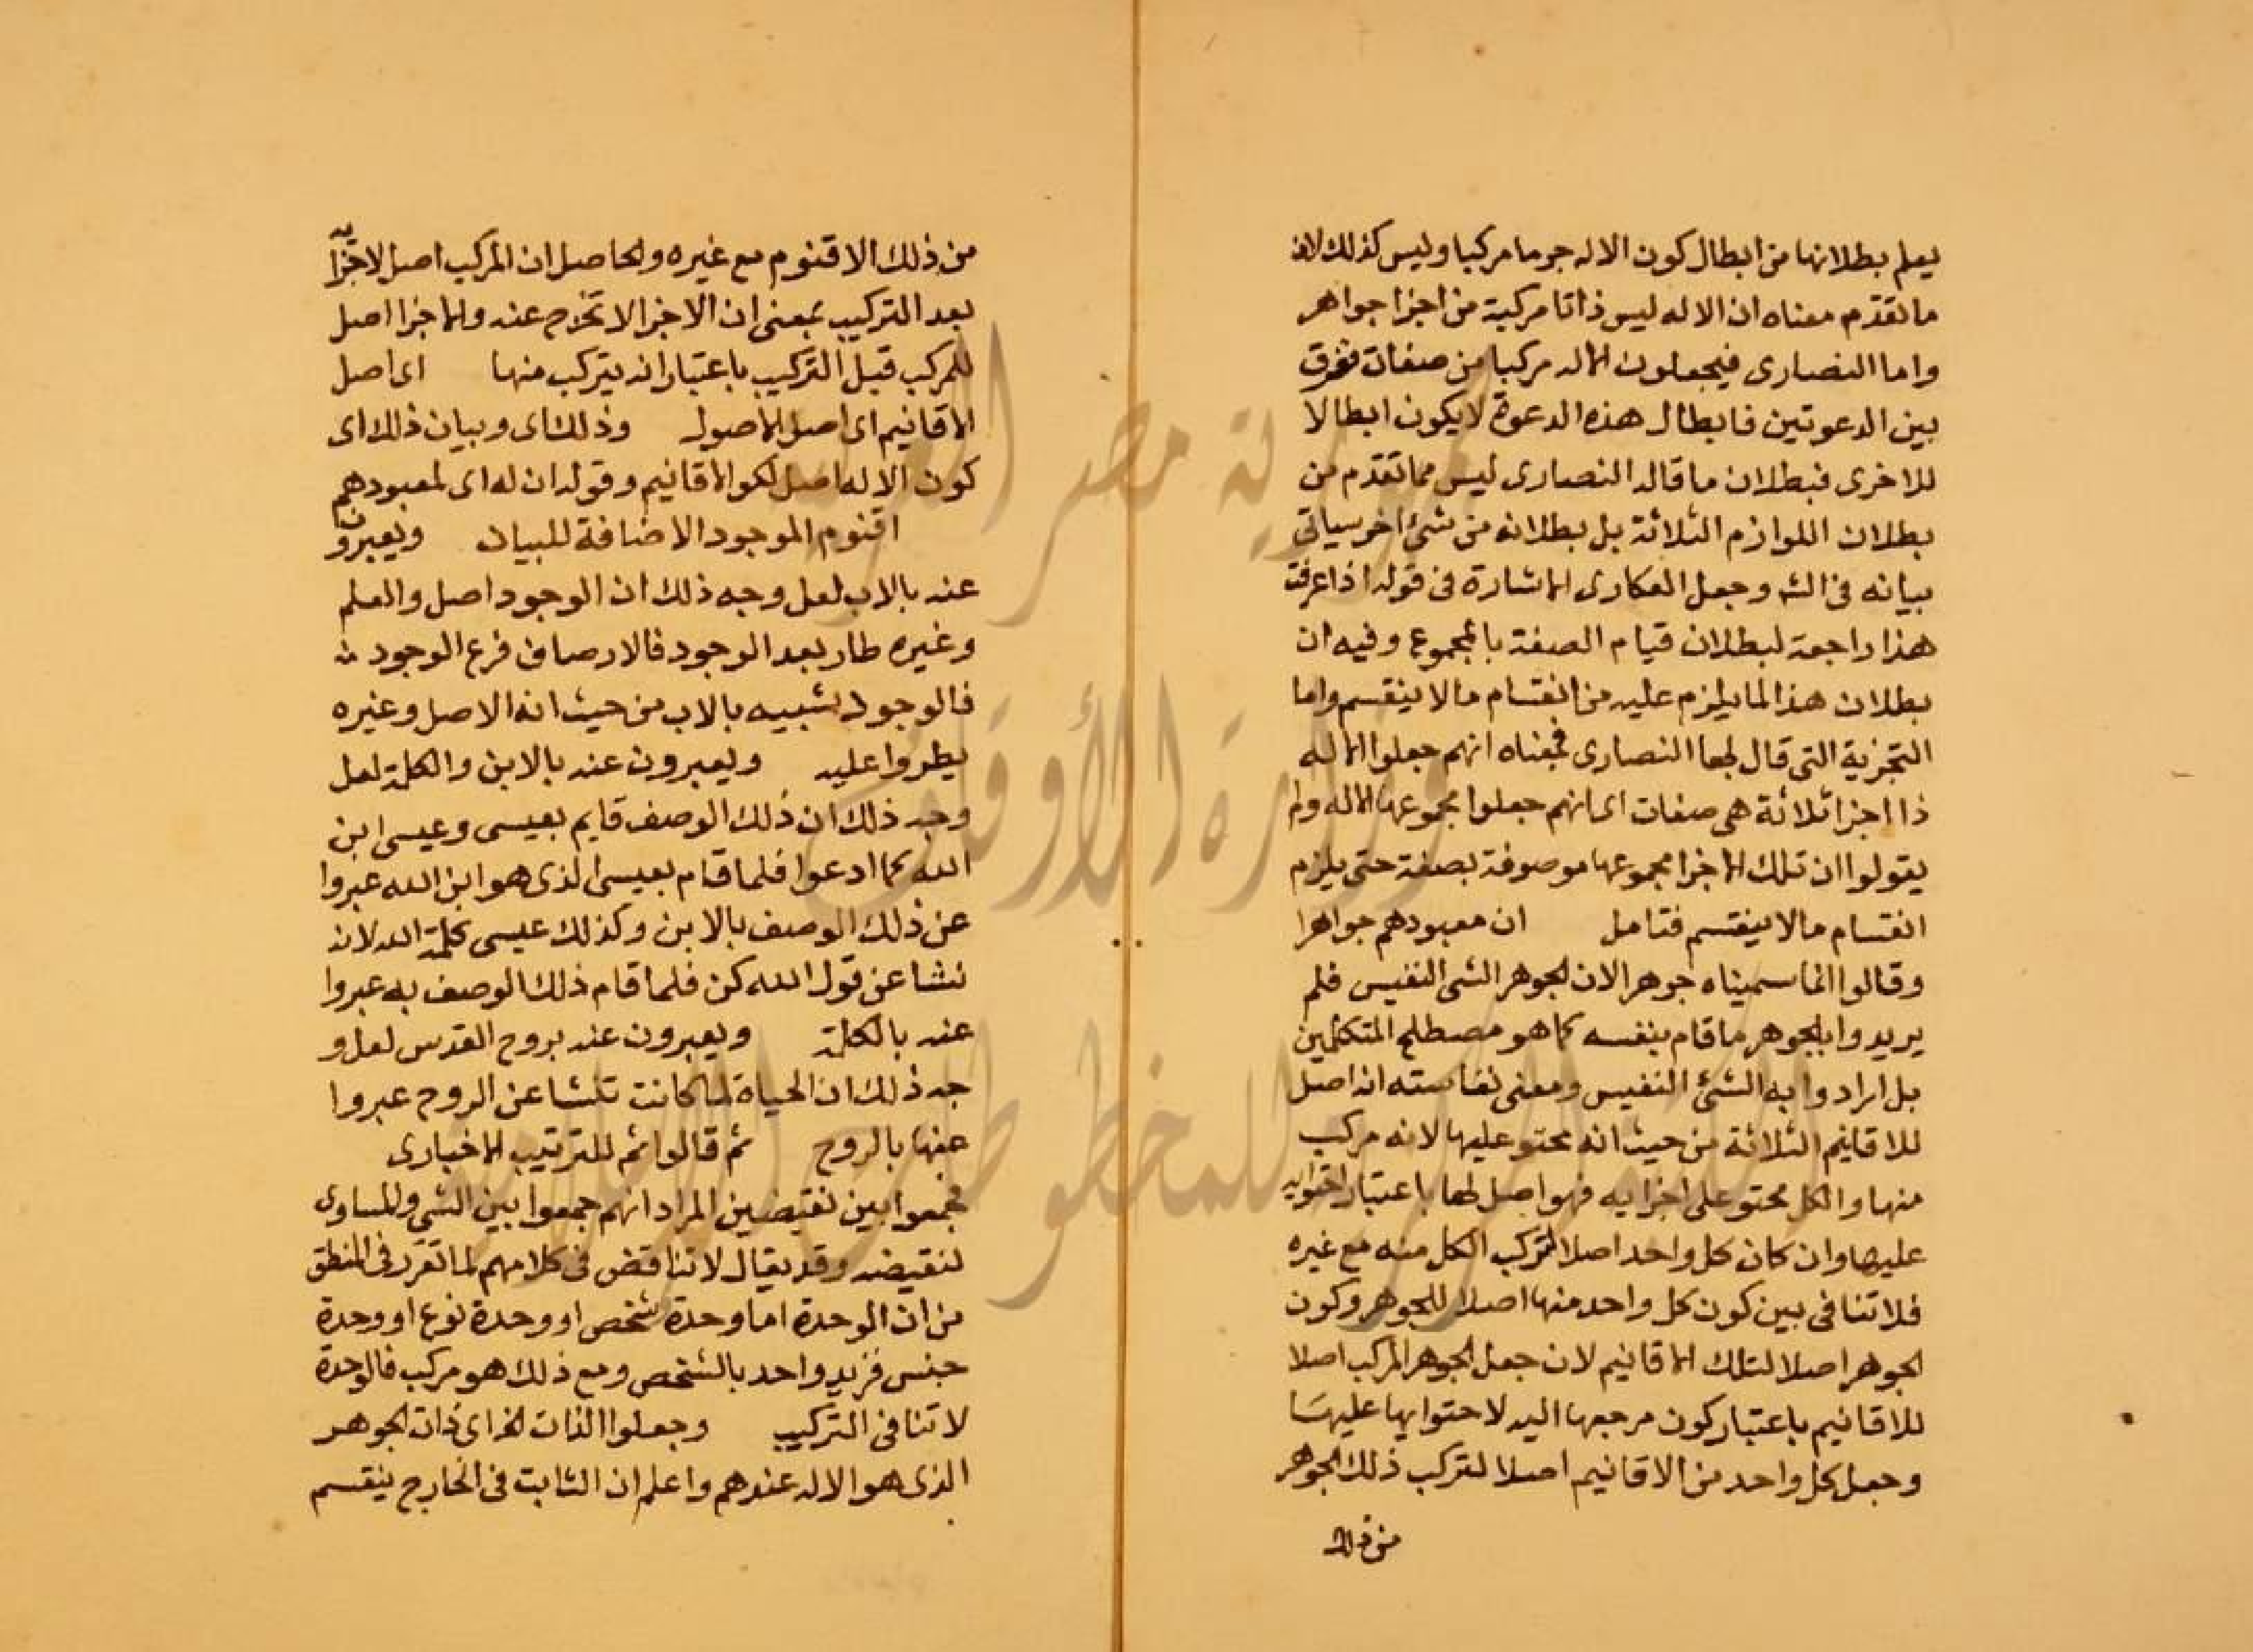 يعلم بطلانها من ابطال كون الاله جرما مركبا وليس كذلك لان
ما تقدم معناه ان الاله ليس ذاتا مركبة من اجزا جواهر
واما النصارى فيجعلون الاله مركبا من صفات ففرق
بين الدعوتين فابطال هذه الدعوة لا يكون ابطالا
للاخرى فبطلان ما قاله النصارى ليس مما تقدم من
بطلان اللوازم الثلاثة بل بطلانه من شئ اخر سياتى
بيانه فى الش وجعل العكارى الاشارة فى قوله اذا عرفت
هذا راجعة لبطلان قيام الصفة بالمجموع وفيه ان
بطلان هذا لما يلزم عليه من انقسام ما لا ينقسم واما
التجزية التى قال بها النصارى فمعناه انهم جعلوا الاله
ذا اجزا ثلاثة هى صفات اى انهم جعلوا مجموعها الاله ولم
يقولوا ان تلك الاجزا مجموعها موصوفة بصفة حتى يلزم
انقسام ما لا ينقسم فتامل ان معبودهم جواهرا
وقالوا انما سميناه جوهرا لان الجوهر الشى النفيس فلم
يريدوا بالجوهر ما قام بنفسه كما هو مصطلح المتكلمين
بل ارادوا به الشئ النفيس ومعنى نفاسته انه اصل
للاقانيم الثلاثة من حيث انه محتو عليها لانه مركب
منها والكل محتو على اجزايه فهو اصل لها باعتبار احتوايه
عليها وان كان كل واحد اصلا لتركب الكل منه مع غيره
فلا تنافى بين كون كل واحد منها اصلا للجوهر وكون
الجوهر اصلا لتلك الاقانيم لان جعل الجوهر المركب اصلا
للاقانيم باعتبار كون مرجعها اليه لاحتوايها عليها
وجعل كل واحد من الاقانيم اصلا لتركب ذلك الجوهر
من ذلك
من ذلك الاقنوم مع غيره والحاصل ان المركب اصل لاجزايه
بعد التركيب بمعنى ان الاجزا لا تخرج عنه والاجزا اصل
للمركب قبل التركيب باعتبار انه يتركب منها اى اصل
الاقانيم اى اصل الاصول وذلك اى وبيان ذلك اى
كون الاله اصل لكو الاقانيم وقوله ان له اى لمعبودهم
اقنوم الموجود الاضافة للبيان ويعبرون
عنه بالاب لعل وجه ذلك ان الوجود اصل والعلم
وغيره طار بعد الوجود فالاوصاف فرع الوجود
فالوجود شبيه بالاب من حيث انه الاصل وغيره
يطروا عليه ويعبرون عنه بالابن والكلمة لعل
وجه ذلك ان ذلك الوصف قايم بعيسى وعيسى ابن
الله كما ادعوا فلما قام بعيسى الذى هو ابن الله عبروا
عن ذلك الوصف بالابن وكذلك عيسى كلمة الله لانه
نشا عن قول الله كن فلما قام ذلك الوصف به عبروا
عنه بالكلمة ويعبرون عنه بروح القدس لعل و
جه ذلك ان الحياة لما كانت تنشا عن الروح عبروا
عنها بالروح ثم قالوا ثم للترتيب الاخبارى
فجمعوا بين نقيضين المراد انهم جمعوا بين الشى والمساوى
لنقيضه وقد يقال لا تناقض فى كلامهم لما تقرر فى المنطق
من ان الوحدة اما وحدة شخص او وحدة نوع او وحدة
جنس فزيد واحد بالشخص ومع ذلك هو مركب فالوحدة
لا تنافى التركيب وجعلوا الذات الخ اى ذات الجوهر
الذى هو الاله عندهم واعلم ان الثابت فى الخارج ينقسم